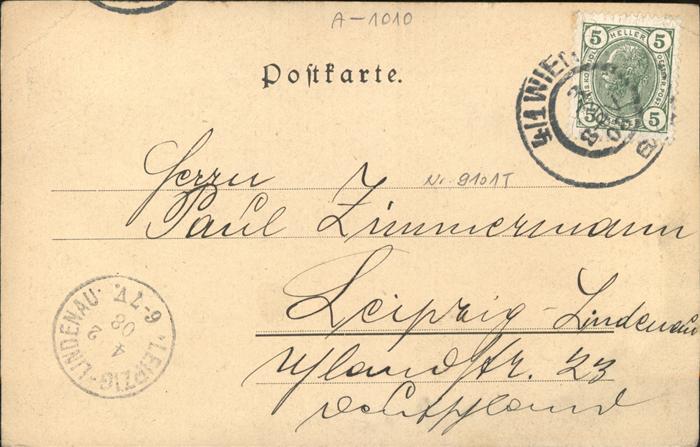 A-1010
Postkarte.
5 HELLER 5
5 5
4/1 WIEN
Nr. 9101T
Herrn
Paul Zimmermann
Leipzig-Lindenau
Uhlandstr. 23
Deutschland
LEIPZIG-LINDENAU.
6-7 V.
4
2
08